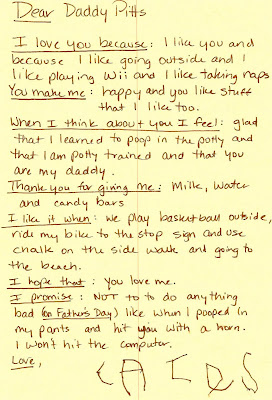 Dear Daddy Pitts
I love you because: I like you and
because I like going outside and I
like playing Wii and I like taking naps
You make me: happy and you like stuff
that I like too.
When I think about you I feel: glad
that I learned to poop in the potty and
that I am potty trained and that you
are my daddy.
Thank you for giving me: Milk, water
and candy bars
I like it when: we play basketball outside,
ride my bike to the stop sign and use
chalk on the side walk and going to
the beach.
I hope that: you love me.
I promise: NOT to to do anything
bad (on Father's Day) like when I pooped in
my pants and hit you with a horn.
I won't hit the computer.
Love,
CAIDS